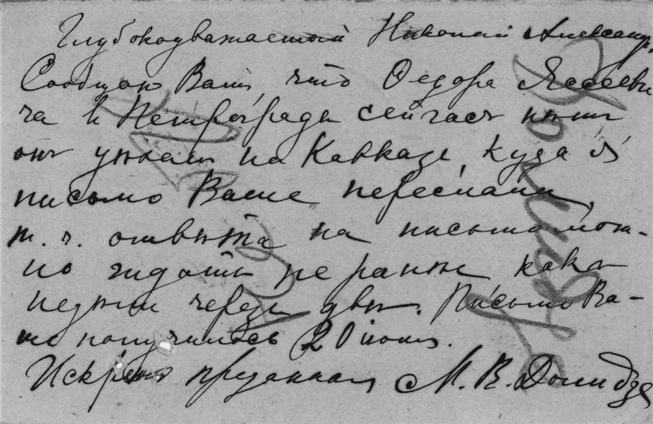 Глубокоуважаемый Николай Александр.
Сообщаю Вамъ, что Ѳедора Ясееви
ча въ Петроградѣ сейчасъ нѣтъ
онъ уѣхалъ на Кавказъ, куда я
письмо Ваше пересылаю,
т. ч. отвѣта на письмо мож-
но ждать не ранѣе какъ
недѣли черезъ двѣ. Письмо Ва-
ше получилось 20 іюня.
Искренно преданная М. В. Долидзе